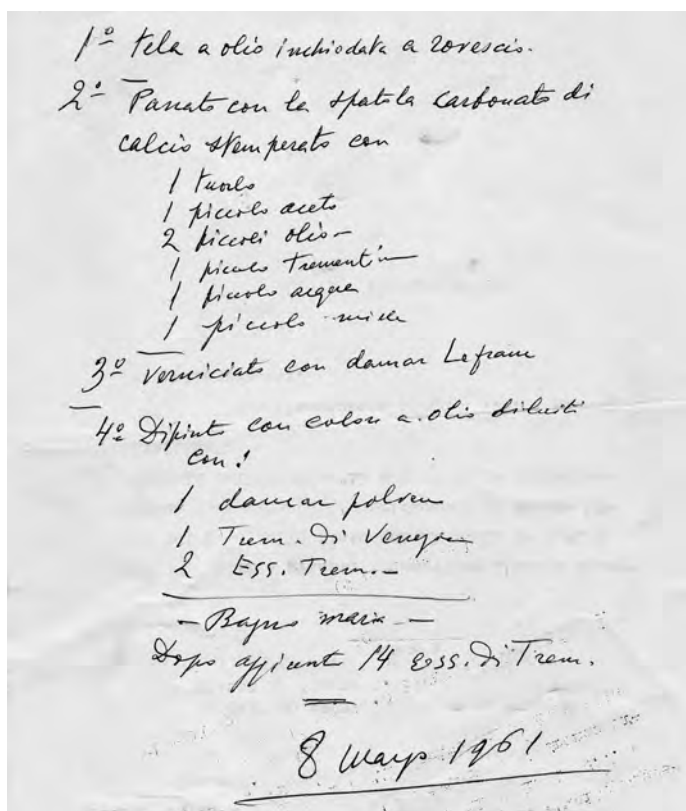 1º tela a olio inchiodata a rovescio.
2º Passato con la spatola carbonato di
calcio stemperato con
1 tuorlo
1 piccolo aceto
2 piccoli olio -
1 piccolo Trementin
1 piccolo acqua
1 piccolo miele
3º Verniciato con damar Lefranc
4º Dipinto con colori a olio diluiti
con:
1 damar polvere
1 Trem. di Venezia
2 Ess. Trem. -
- Bagno maria -
Dopo aggiunto 14 Ess. di Trem.
8 Marzo 1961